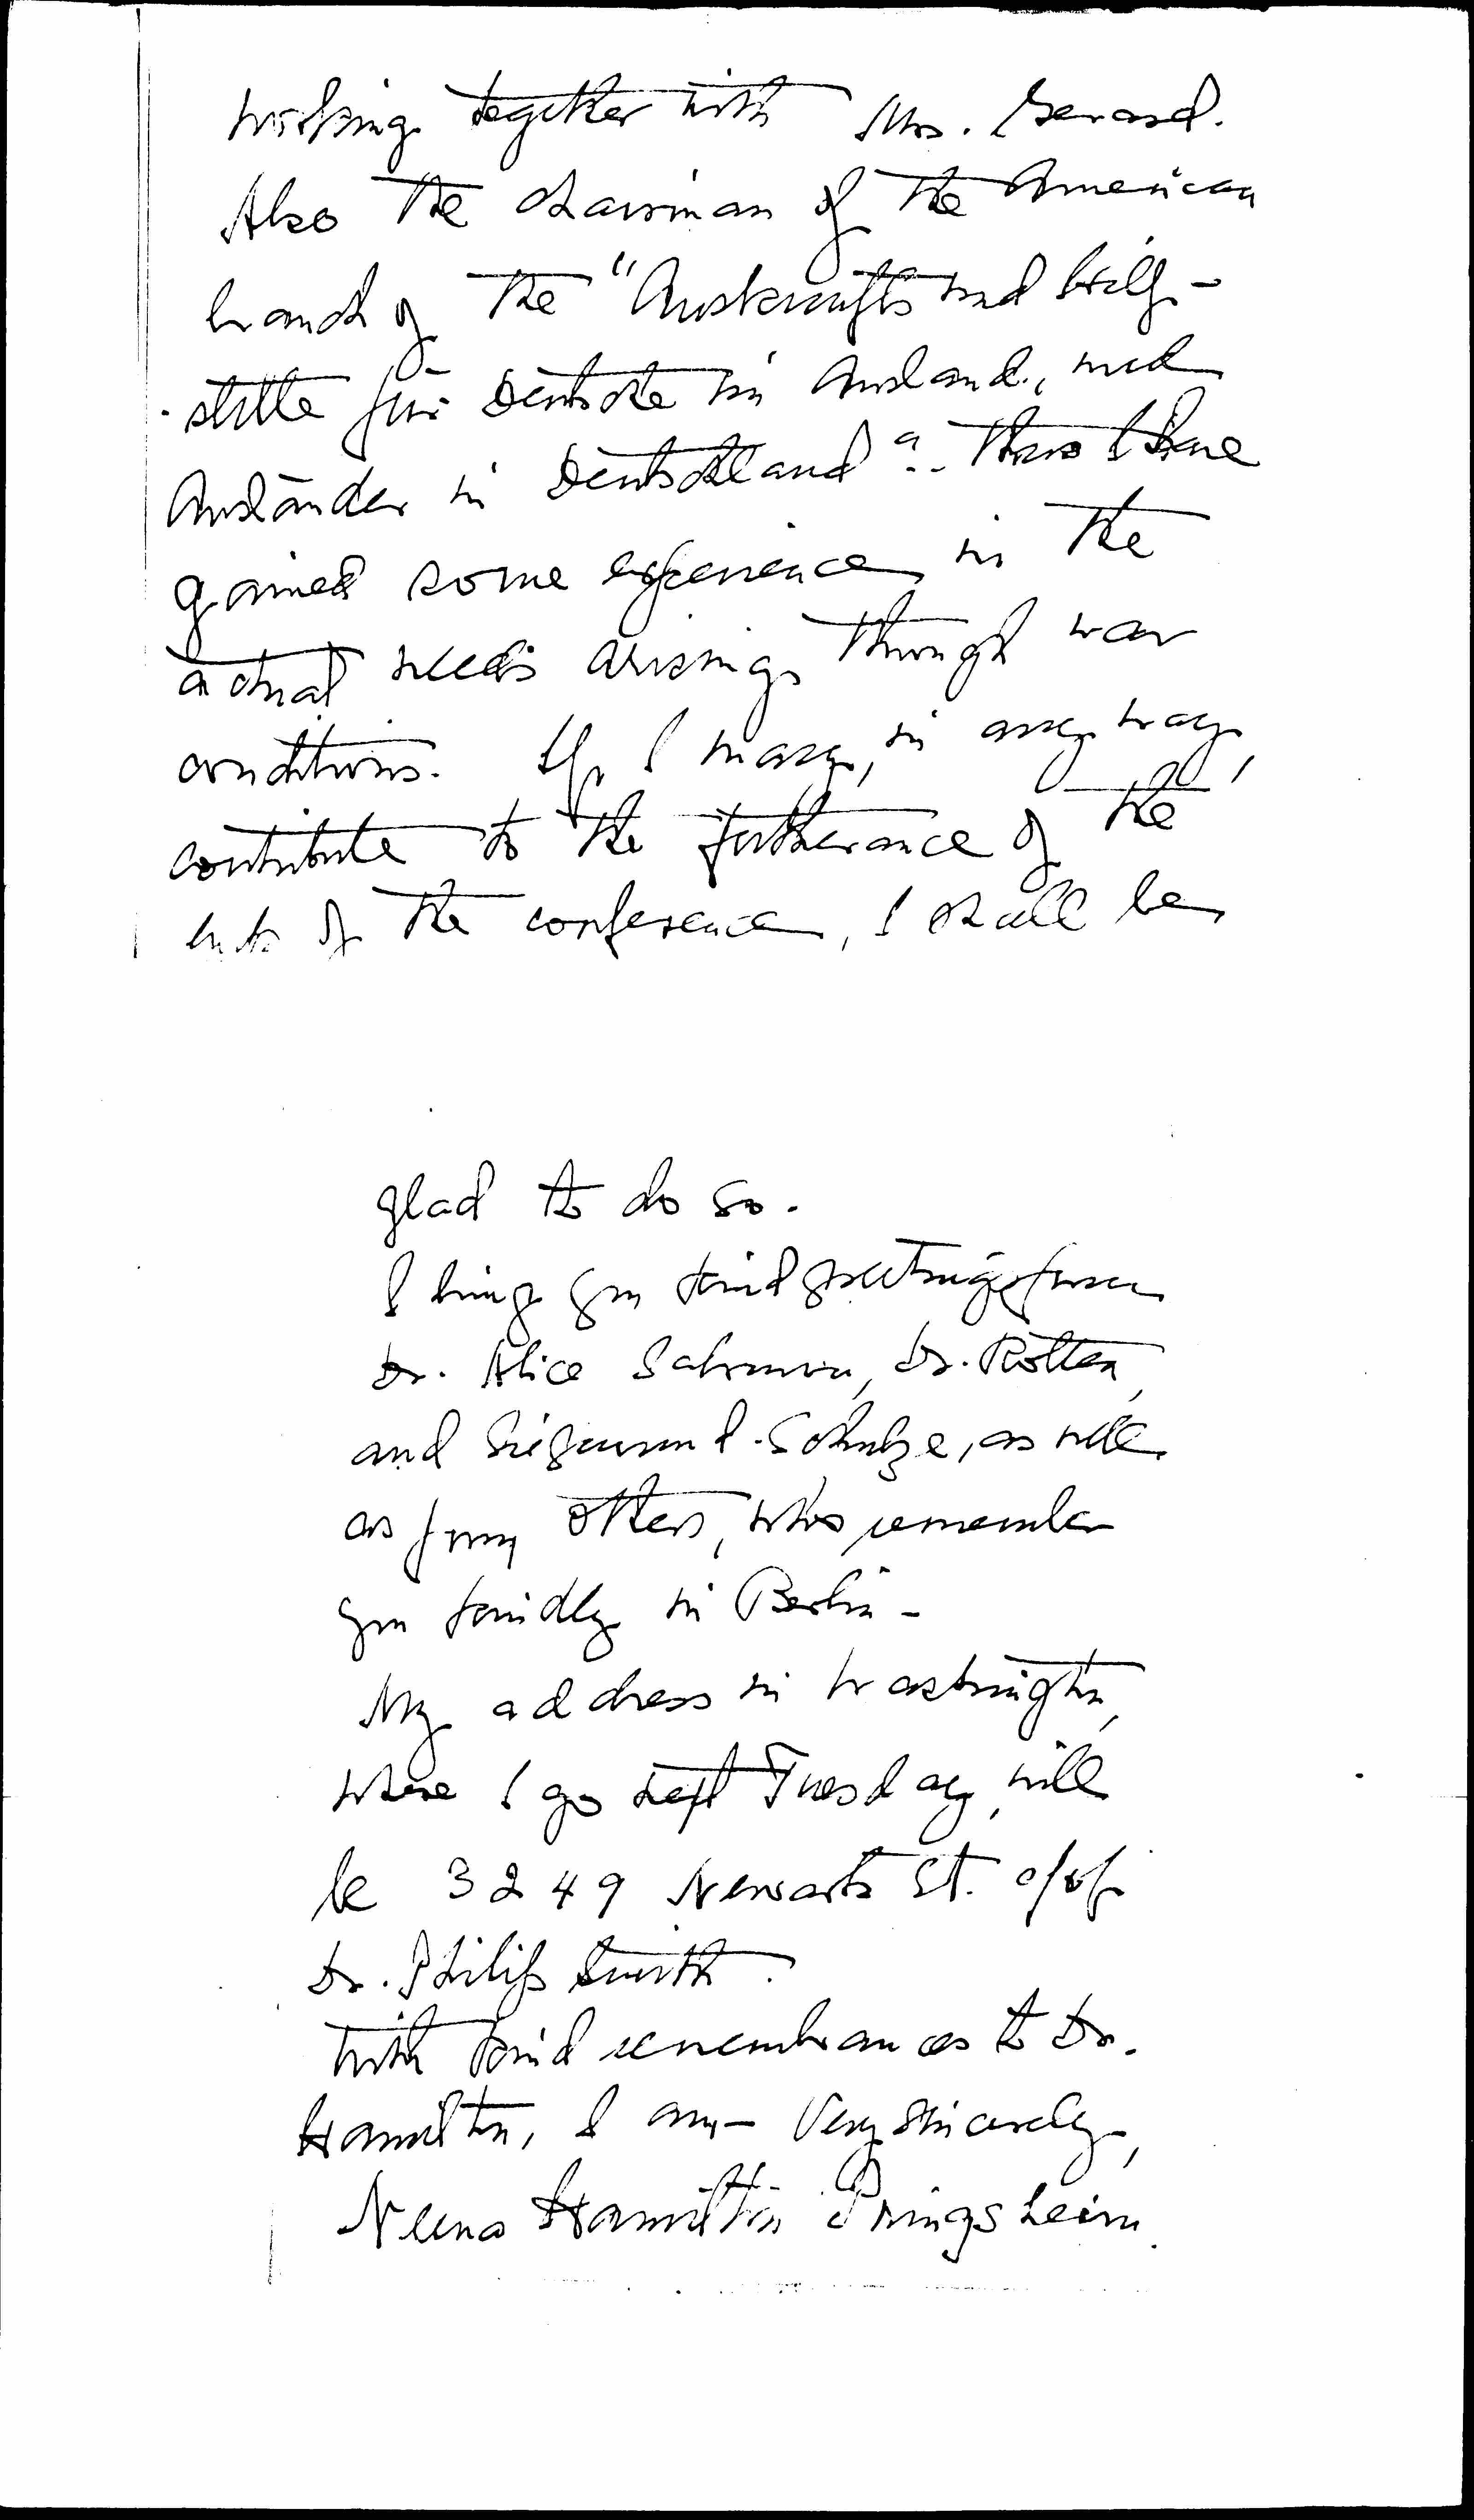 working together with Mrs. Gerard.
Also the chairman of the American
branch of the "Auskunfts und Hilfs-
stelle für Deutsche im Ausland, und
Ausländer in Deutschland". Thus I have
gained some experience in the
actual needs arising through war
conditions. If I may, in any way,
contribute to the furtherance of the
ends of the conference, I shall be
glad to do so.
I bring you kind greetings from
Dr. Alice Salomon, Dr. Rotten,
and Siegmund-Schultze, as well
as from others, who remember
you kindly in Berlin-
My address in Washington,
where I go next Tuesday, will
be 3249 Newark St. c/of
Dr. Philip Smith.
With kind remembrances to Dr.
Hamilton, I am- Very sincerely,
Nena Hamilton Pringsheim.